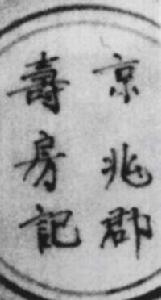 京兆郡
壽房記